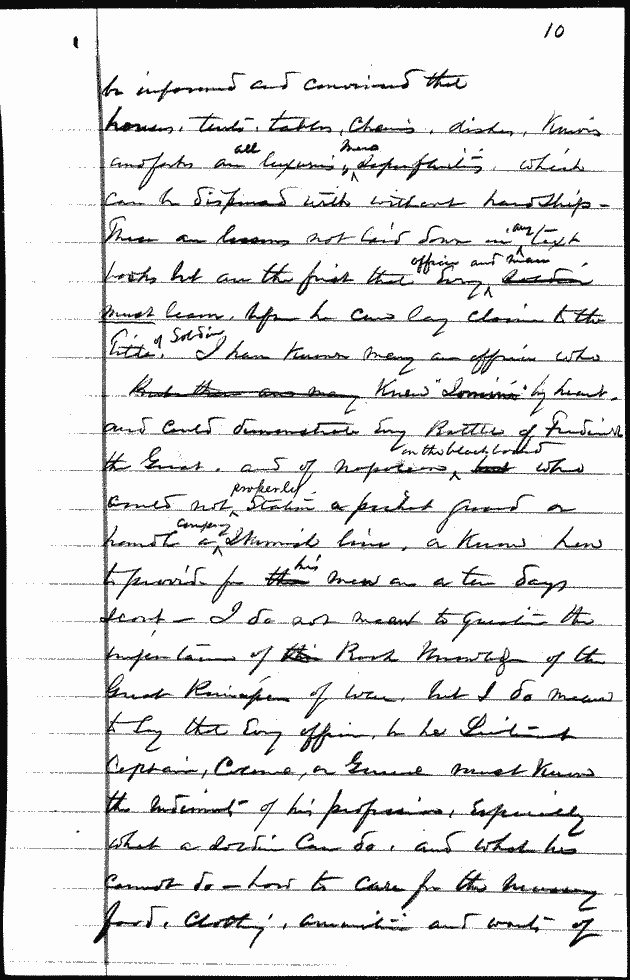 10
be informed and convinced that
houses, tents, tables, chairs, dishes, knives
and forks are all luxuries, mere superfluities, which
can be dispensed with without hardship -
These are lessons not laid down in any text
books but are the first that every officer and man soldier
must learn, before he can lay claim to the
title of Soldier. I have known many an officer who
Knew "Jomini" by heart.
and could demonstrate every Battle of Frederick
the Great, and of Napoleon on the blackboard but who
could not properly station a picket guard or
handle a company skirmish line, or know how
to provide for his men on a ten days
scout - I do not mean to question the
importance of this Book Knowledge of the
Great Principles of war, but I do mean
to say that every officer, be he Lieutenant
Captain, Colonel, or General must know
the rudiments of his profession, Especially
what a soldier can do, and what he
cannot do - how to care for the necessary
food, clothing, ammunition and wants of